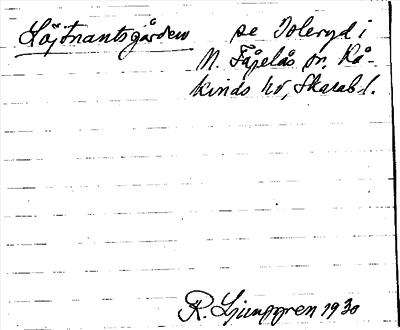 Löjtnantsgården se Toleryd i
N. Fågelås sn. Kå-
kinds hd, Skarab. l.
R. Ljunggren 1930